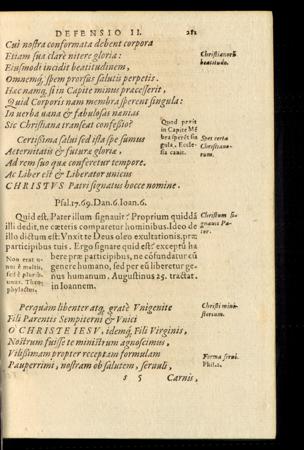 DEFENSIO II.
281
Cui nostra conformata debent corpora
Etiam sua clarè nitere gloria:
Eiusmodi incidit beatitudinem,
Omnemq́, spem prorsus salutis perpetis.
Hac namq́, si in Capite minus præcesserit,
Quid Corporis nam membra sperent singula:
In uerba uana & fabulosas nænias
Sic Christiana transeat confessio?
Certissima salus sed ista spe sumus
Aeternitatis & futuræ gloriæ,
Ad rem suo quæ conferetur tempore.
Ac Liber est & Liberator unicus
CHRISTVS Patri signatus hocce nomine.
Christianorũ
beatitudo.
Quod perit
in Capite Mẽ
bra sperẽt sin
gula, Eccle-
sia cauit.
Spes certa
Christiano-
rum.
Psal.17.69. Dan.6. Ioan.6.
Quid est, Pater illum signauit? Proprium quiddã
illi dedit, ne cæteris comparetur hominibus. Ideo de
illo dictum est: Vnxit te Deus oleo exultationis, præ
participibus tuis. Ergo signare quid est? exceptũ ha
bere præ participibus, ne cõfundatur cũ
genere humano, sed per eũ liberetur ge-
nus humanum. Augustinus 25. tractat.
in Ioannem.
Christum si-
gnauit Pa-
ter.
Non erat u-
nus è multis,
sed è pluribus
unus. Theo-
phylactus.
Perquàm libenter atq́, gratè Vnigenitæ
Fili Parentis Sempiterni & Vnici
O CHRISTE IESV, idemq́, Fili Virginis,
Nostrum fuisse te ministrum agnoscimus,
Vilissimam propter receptam formulam
Pauperrimi, nostram ob salutem, seruuli,
Christi mini-
sterium.
Forma serui.
Phil.2.
s 5
Carnis,